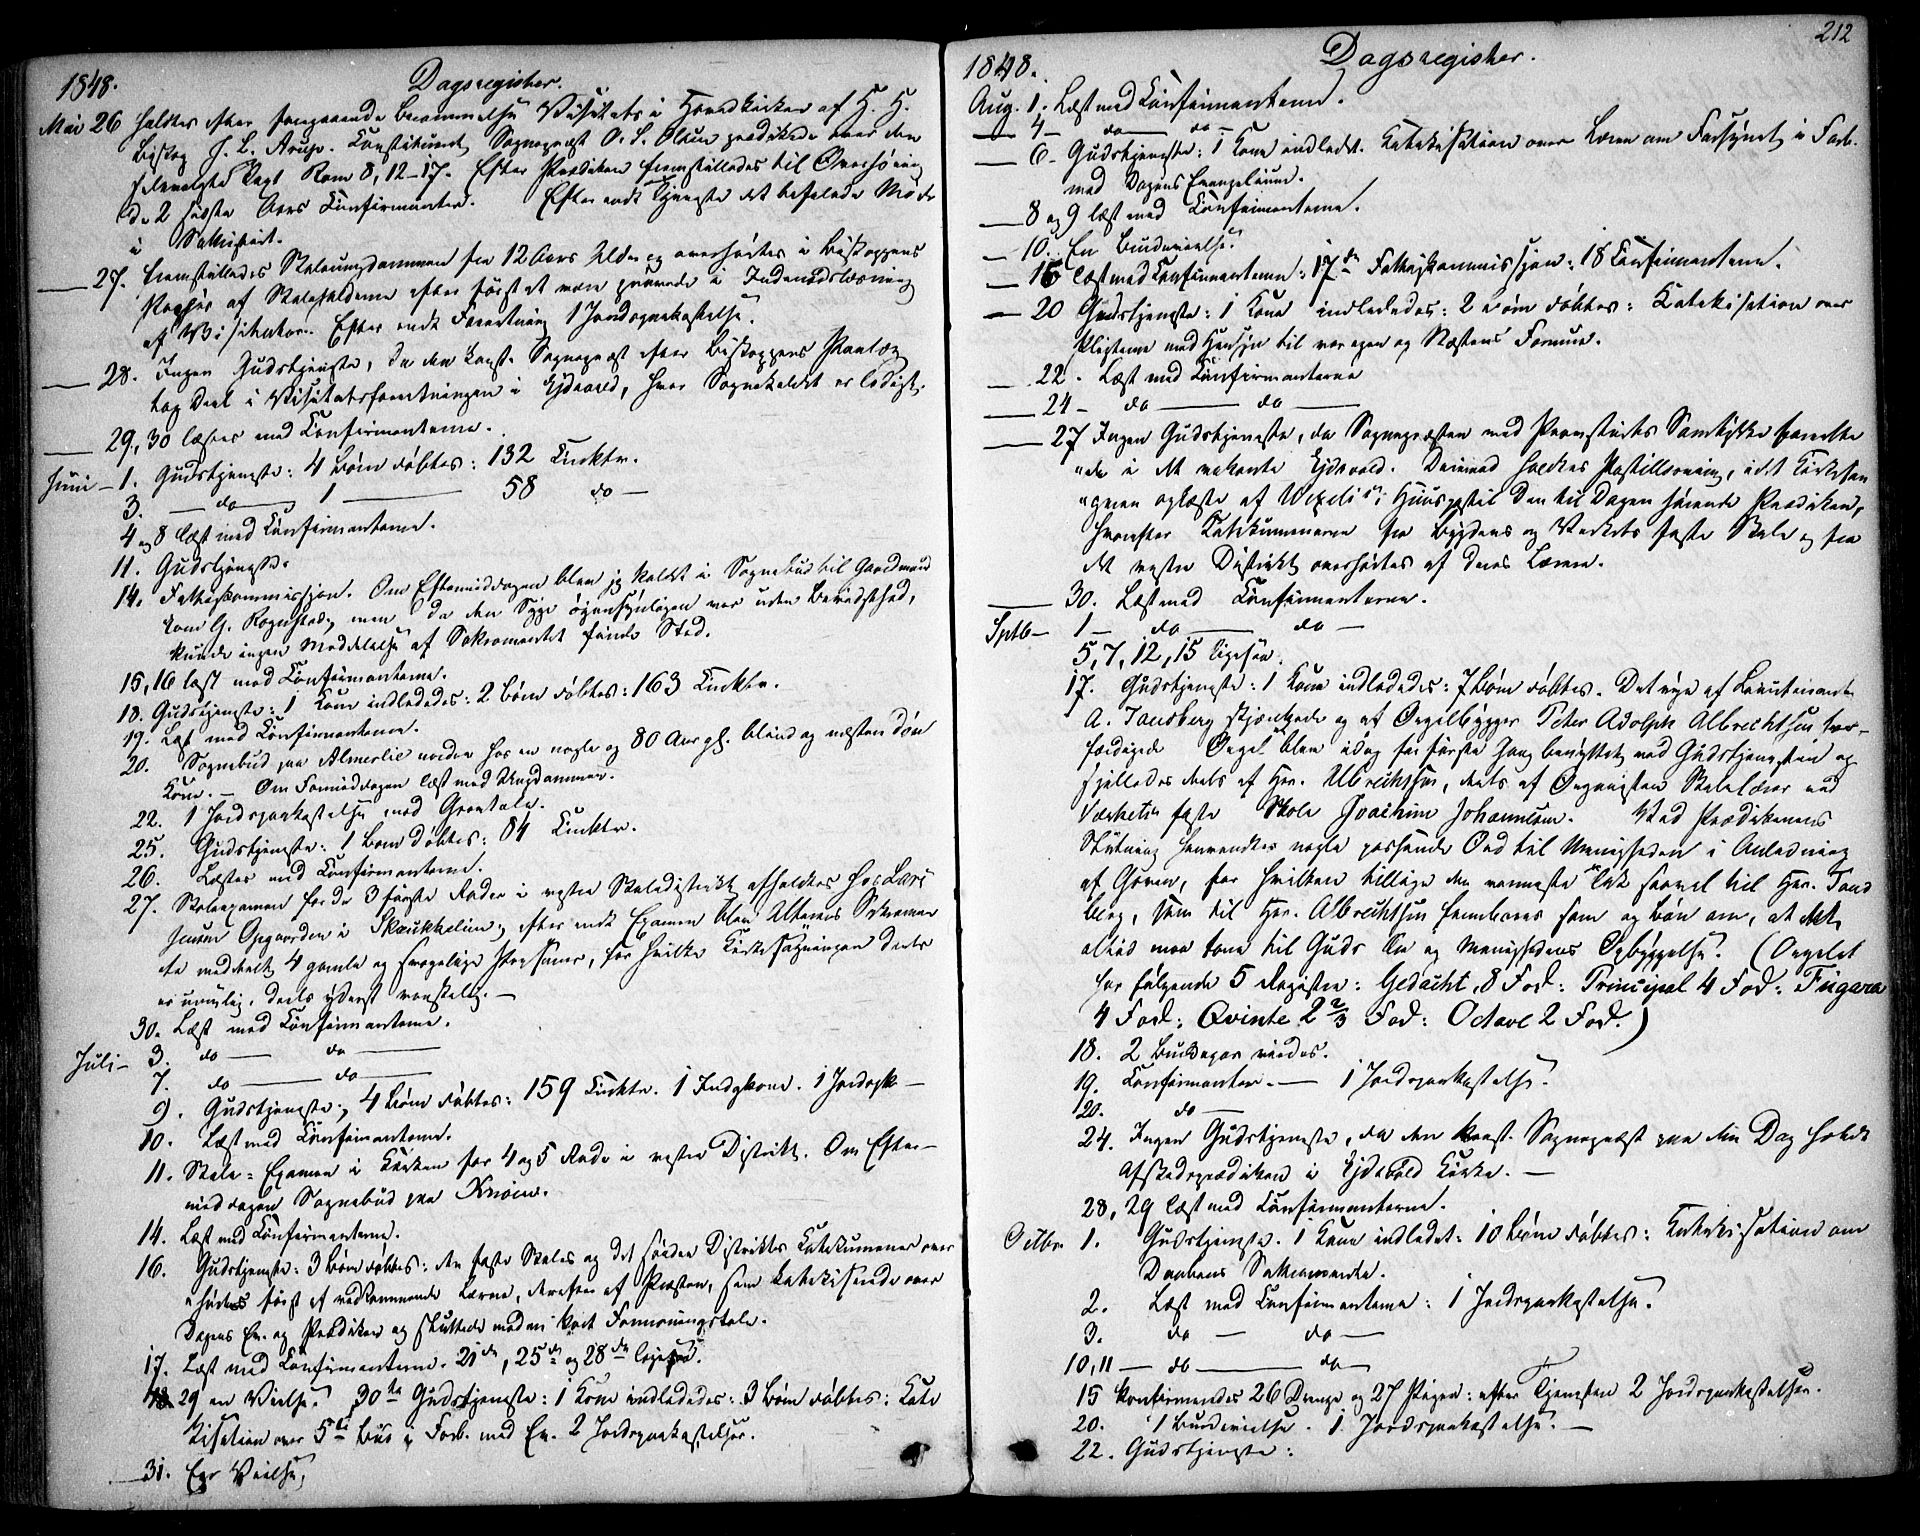 1848. Dagsregister.
Mai 26 holdtes efter foregaaende Berammelse Visitats i Hovedkirken af H. H.
Biskop J. L. Arup. Konstitueret Sognepræst O. S. Olsen prædikede over den
selvvalgte Text Rom 8, 12-17. Efter Prædiken fremstilledes til Overhøring
de 2 sidste Aars Confirmanter. Efter endt Tjeneste det befalede Møde
i Sakristiet.
27. fremstilledes Skoleungdommen fra 12 Aars Alder og overhørtes i Biskoppens
Paahør af Skoleholderne efter først at være prøvede i Indenadslæsning
af Visitator. Efter endt Forretning 1 Jordspaakastelse.
28. Ingen Gudstjeneste, da den const. Sognepræst efter Biskoppens Paalæg
tog Deel i Visitatsforretningen i Ejdsvold, hvor Sognekaldet er ledigt.
29, 30 læstes med Confirmanterne.
Juni - 1. Gudstjeneste: 4 Børn døbtes: 132 Cmktr.
3. — do — 1 — 58 do —
4 og 8 læst med Confirmanterne.
11. Gudstjeneste.
14. Fattigkommission. Om Eftermiddagen blev jeg kaldt i Sognebud til Gaardmand
G. Rognstad, men da den Syge øiensynligen var uden Bevidsthed,
kunde ingen Meddelelse af Sakramentet finde Sted.
15, 16 læst med Confirmanterne.
18. Gudstjeneste: 1 Kone indlededes: 2 Børn døbtes: 163 Cmktr.
19. Læst med Confirmanterne.
20. Sognebud paa Almerlie nedre hos en nogle og 80 Aar gl. blind og næsten døv
Kone. — Om Formiddagen læst med Ungdommen.
22. 1 Jordspaakastelse med Gravtale.
25. Gudstjeneste: 1 Barn døbtes: 84 Cmktr.
26. Læstes med Confirmanterne.
27. Skoleexamen for de 3 første Roder i vestre Skoledistrikt afholdtes hos Lars
Jensen Opgaarden i Skaukkelien; efter endt Examen blev Alterens Sakramen
te meddeelt 4 gamle og svagelige Personer, for hvilke Kirkesøgningen deels
er umulig, deels yderst vanskelig. —
30. Læst med Confirmanterne.
Juli - 3. do — do —
7. do — do —
9. Gudstjeneste; 4 Børn døbtes: 159 Cmktr. 1 Indgkone. 1 Jordspk —
10. Læst med Confirmanterne.
11. Skole-Examen i Kirken for 4 og 5 Rode i vestre Distrikt. Om Efter-
middagen Sognebud paa
14. Læst med Confirmanterne.
16. Gudstjeneste: 3 Børn døbtes: den faste Skoles og det søndre Distrikts Katekumener over
hørtes først af vedkommende Lærere, derefter af Præsten, som katekiserede over
Dagens Ev. og Prædiken og sluttede med en kort Formaningstale.
17. Læst med Confirmanterne. 21de, 25de og 28de ligesaa.
29 en Vielse. 30te Gudstjeneste: 1 Kone indlededes: 3 Børn døbtes: Kate
kisation over 5te Bud i Forb. med Ev. 2 Jordspaakastelser.
31. Een Vielse.
212
1848. Dagsregister.
Aug. 1. Læst med Confirmanterne.
4 - do — do —
6 - Gudstjeneste: 1 Kone indledet. Katekisation over Læren om Forsynet i Forb.
med Dagens Evangelium.
8 og 9 læst med Confirmanterne.
10. En Brudevielse.
16 læst med Confirmanterne: 17de Fattigkommission: 18 Confirmanterne.
20 Gudstjeneste: 1 Kone indlededes: 2 Børn døbtes: Katekisation over
Pligterne med Hensyn til vor egen og Næstens Formue.
22. Læst med Confirmanterne
24 - do — do —
27 Ingen Gudstjeneste, da Sognepræsten med Provstiets Samtykke forrette
"de i det vakante Ejdsvold. Derimod holdtes Postillæsning, idet Kirkesan
"geren oplæste af Wexels's Huuspostil den til Dagen hørende Prædiken,
hvorefter Katekumenerne fra Bygdens og Værkets faste Skole og fra
det vestre Distrikt overhørtes af deres Lærere.
30. Læst med Confirmanterne.
Sptb - 1 - do — do —
5, 7, 12, 15 ligesaa.
17. Gudstjeneste: 1 Kone indlededes: 7 Børn døbtes. Det nye af Lieutenant
A. Tansberg skjænkede og af Orgelbygger Peter Adolph Albrechtsen for-
færdigede Orgel blev idag for første Gang benyttet ved Gudstjenesten og
spilledes deels af Hr. Albrechtsen, deels af Organisten Skolelærer ved
Værkets faste Skole Joachim Johannesen. Ved Prædikenens
Slutning henvendtes nogle passende Ord til Menigheden i Anledning
af Gaven, for hvilken tillige den varmeste Tak saavel til Hr. Tans
berg, som til Hr. Albrechtsen frembares som og Bøn om, at det
altid maa tone til Guds Ære og Menighedens Opbyggelse. (Orgelet
har følgende 5 Registre: Gedacht, 8 Fod: Principal 4 Fod: Fugara
4 Fod: Qvinte 2 2/3 Fod: Octave 2 Fod.)
18. 2 Brudepar viedes.
19. Confirmanter. — 1 Jordspaakastelse.
20. do —
24. Ingen Gudstjeneste, da den konst. Sognepræst paa den Dag holdt
Afskedsprædiken i Ejdsvold Kirke. —
28, 29 læst med Confirmanterne.
Octbr 1. Gudstjeneste. 1 Kone indledet: 10 Børn døbtes: Katekisation om
Daabens Sakramente.
2. Læst med Confirmanterne: 1 Jordspaakastelse.
3. do — do —
10, 11 — do — do —
15 Konfirmeredes 26 Drenge og 27 Piger: efter Tjenesten 2 Jordspaakastelser.
20. 1 Brudevielse. 1 Jordspaakastelse. —
22. Gudstjeneste: